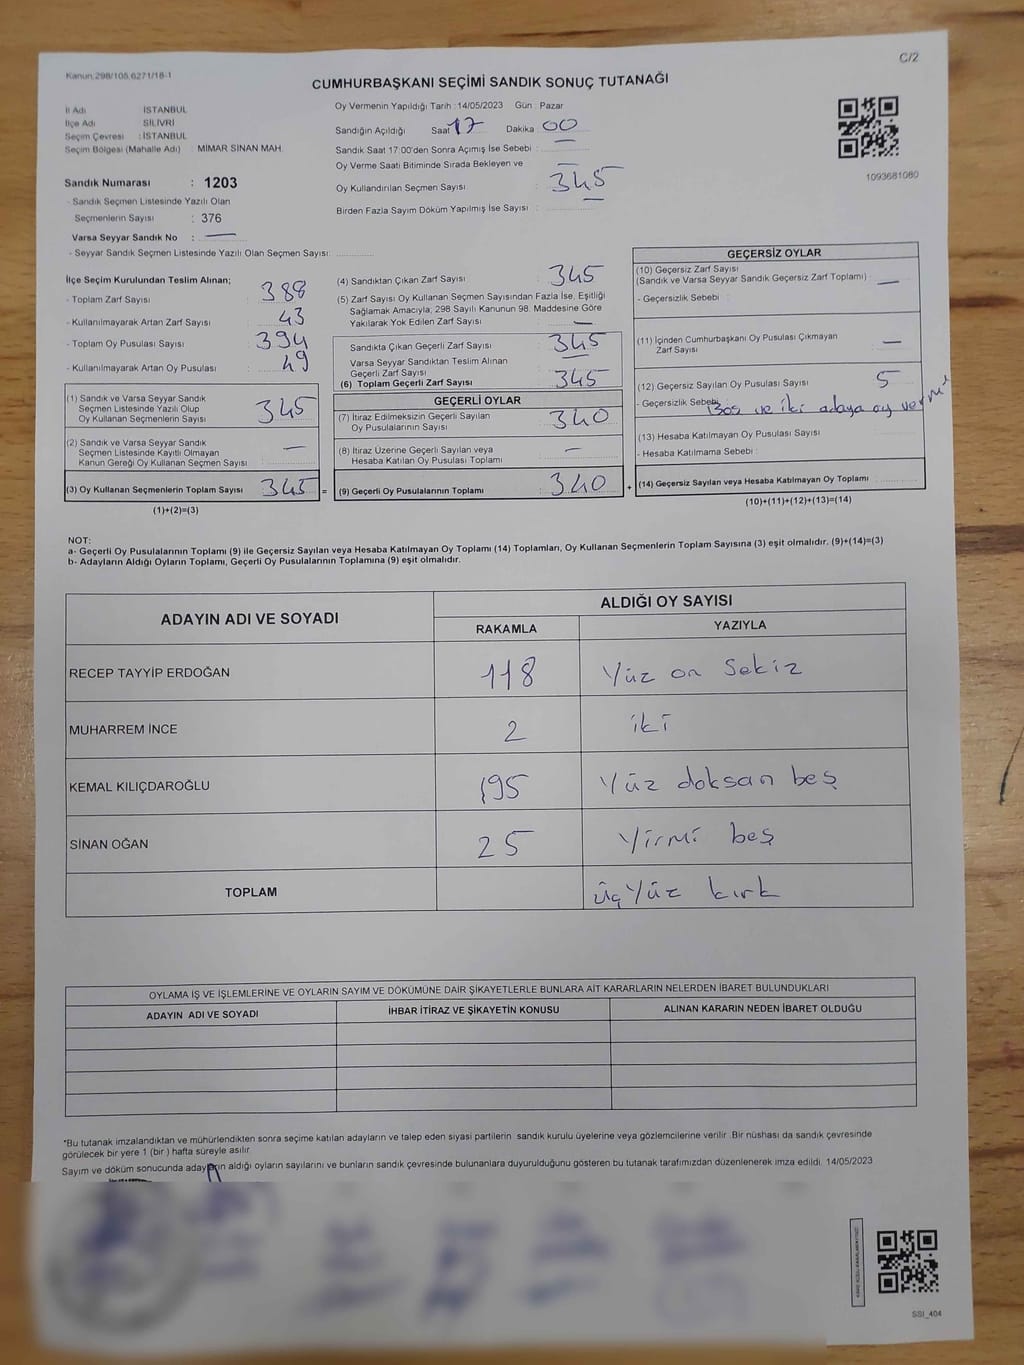 Kanun.298/105,6271/18-1
C/2
CUMHURBAŞKANI SEÇİMİ SANDIK SONUÇ TUTANAĞI
İl Adı İSTANBUL
İlçe Adı SİLİVRİ
Seçim Çevresi : İSTANBUL
Seçim Bölgesi (Mahalle Adı) : MİMAR SİNAN MAH.
Sandık Numarası : 1203
- Sandık Seçmen Listesinde Yazılı Olan
Seçmenlerin Sayısı : 376
Varsa Seyyar Sandık No : —
- Seyyar Sandık Seçmen Listesinde Yazılı Olan Seçmen Sayısı:
Oy Vermenin Yapıldığı Tarih :14/05/2023 Gün : Pazar
Sandığın Açıldığı Saat 17 Dakika 00
Sandık Saat 17:00'den Sonra Açımış İse Sebebi : —
Oy Verme Saati Bitiminde Sırada Bekleyen ve —
Oy Kullandırılan Seçmen Sayısı : 345
Birden Fazla Sayım Döküm Yapılmış İse Sayısı : —
1093681080
İlçe Seçim Kurulundan Teslim Alınan;
- Toplam Zarf Sayısı : 388
- Kullanılmayarak Artan Zarf Sayısı : 43
- Toplam Oy Pusulası Sayısı : 394
- Kullanılmayarak Artan Oy Pusulası : 49
(1) Sandık ve Varsa Seyyar Sandık
Seçmen Listesinde Yazılı Olup
Oy Kullanan Seçmenlerin Sayısı : 345
(2) Sandık ve Varsa Seyyar Sandık
Seçmen Listesinde Kayıtlı Olmayan
Kanun Gereği Oy Kullanan Seçmen Sayısı : —
(3) Oy Kullanan Seçmenlerin Toplam Sayısı : 345 =
(1)+(2)=(3)
(4) Sandıktan Çıkan Zarf Sayısı : 345
(5) Zarf Sayısı Oy Kullanan Seçmen Sayısından Fazla İse, Eşitliği
Sağlamak Amacıyla; 298 Sayılı Kanunun 98. Maddesine Göre
Yakılarak Yok Edilen Zarf Sayısı : —
Sandıkta Çıkan Geçerli Zarf Sayısı : 345
Varsa Seyyar Sandıktan Teslim Alınan
Geçerli Zarf Sayısı : —
(6) Toplam Geçerli Zarf Sayısı : 345
GEÇERLİ OYLAR
(7) İtiraz Edilmeksizin Geçerli Sayılan
Oy Pusulalarının Sayısı : 340
(8) İtiraz Üzerine Geçerli Sayılan veya
Hesaba Katılan Oy Pusulası Toplamı : —
(9) Geçerli Oy Pusulalarının Toplamı : 340 +
GEÇERSİZ OYLAR
(10) Geçersiz Zarf Sayısı
(Sandık ve Varsa Seyyar Sandık Geçersiz Zarf Toplamı) : —
- Geçersizlik Sebebi :
(11) İçinden Cumhurbaşkanı Oy Pusulası Çıkmayan
Zarf Sayısı : —
(12) Geçersiz Sayılan Oy Pusulası Sayısı : 5
- Geçersizlik Sebebi: Boş ve iki adaya oy
(13) Hesaba Katılmayan Oy Pusulası Sayısı :
- Hesaba Katılmama Sebebi :
(14) Geçersiz Sayılan veya Hesaba Katılmayan Oy Toplamı :
(10)+(11)+(12)+(13)=(14)
NOT:
a- Geçerli Oy Pusulalarının Toplamı (9) ile Geçersiz Sayılan veya Hesaba Katılmayan Oy Toplamı (14) Toplamları, Oy Kullanan Seçmenlerin Toplam Sayısına (3) eşit olmalıdır. (9)+(14)=(3)
b- Adayların Aldığı Oyların Toplamı, Geçerli Oy Pusulalarının Toplamına (9) eşit olmalıdır.
ADAYIN ADI VE SOYADI ALDIĞI OY SAYISI
RAKAMLA YAZIYLA
RECEP TAYYİP ERDOĞAN 118 Yüz on Sekiz
MUHARREM İNCE 2 iki
KEMAL KILIÇDAROĞLU 195 Yüz doksan beş
SİNAN OĞAN 25 Yirmi beş
TOPLAM üçYüz kırk
OYLAMA İŞ VE İŞLEMLERİNE VE OYLARIN SAYIM VE DÖKÜMÜNE DAİR ŞİKAYETLERLE BUNLARA AİT KARARLARIN NELERDEN İBARET BULUNDUKLARI
ADAYIN ADI VE SOYADI İHBAR İTİRAZ VE ŞİKAYETİN KONUSU ALINAN KARARIN NEDEN İBARET OLDUĞU
*Bu tutanak imzalandıktan ve mühürlendikten sonra seçime katılan adayların ve talep eden siyasi partilerin sandık kurulu üyelerine veya gözlemcilerine verilir. Bir nüshası da sandık çevresinde
görülecek bir yere 1 (bir ) hafta süreyle asılır.
Sayım ve döküm sonucunda adayların aldığı oyların sayılarını ve bunların sandık çevresinde bulunanlara duyurulduğunu gösteren bu tutanak tarafımızdan düzenlenerek imza edildi. 14/05/2023
SSI_404